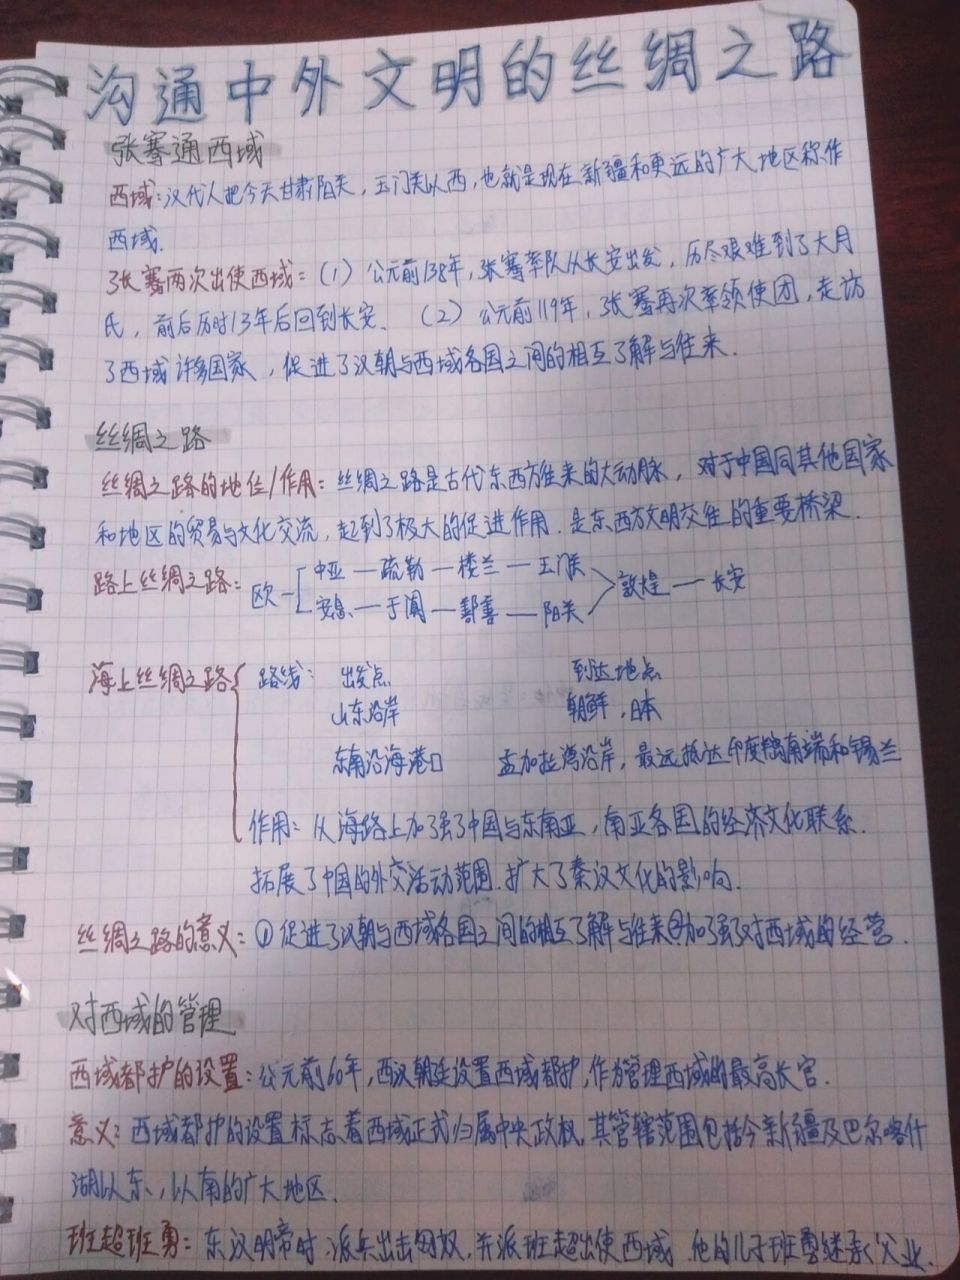 沟通中外文明的丝绸之路
张骞通西域
西域：汉代人把今天甘肃阳关，玉门关以西，也就是现在新疆和更远的广大地区称作
西域．
张骞两次出使西域：（1）公元前138年，张骞率队从长安出发，历尽艰难到了大月
氏，前后历时13年后回到长安．（2）公元前119年，张骞再次率领使团，走访
了西域许多国家，促进了汉朝与西域各国之间的相互了解与往来．
丝绸之路
丝绸之路的地位/作用：丝绸之路是古代东西方往来的大动脉，对于中国同其他国家
和地区的贸易与文化交流，起到了极大的促进作用．是东西方文明交往的重要桥梁．
路上丝绸之路：欧 中亚—疏勒—楼兰—玉门关 敦煌—长安
安息—于阗—鄯善—阳关
海上丝绸之路 路线： 出发点 到达地点
山东沿岸 朝鲜，日本
东南沿海港口 孟加拉湾沿岸，最远抵达印度半岛南端和锡兰
作用：从海路上加强了中国与东南亚，南亚各国的经济文化联系．
拓展了中国的外交活动范围．扩大了秦汉文化的影响．
丝绸之路的意义：①促进了汉朝与西域各国之间的相互了解与往来②加强了对西域的经营．
对西域的管理
西域都护的设置：公元前60年，西汉朝廷设置西域都护，作为管理西域的最高长官．
意义：西域都护的设置标志着西域正式归属中央政权，其管辖范围包括今新疆及巴尔喀什
湖以东、以南的广大地区．
班超班勇：东汉明帝时，派兵出击匈奴，并派班超出使西域．他的儿子班勇继承父业．